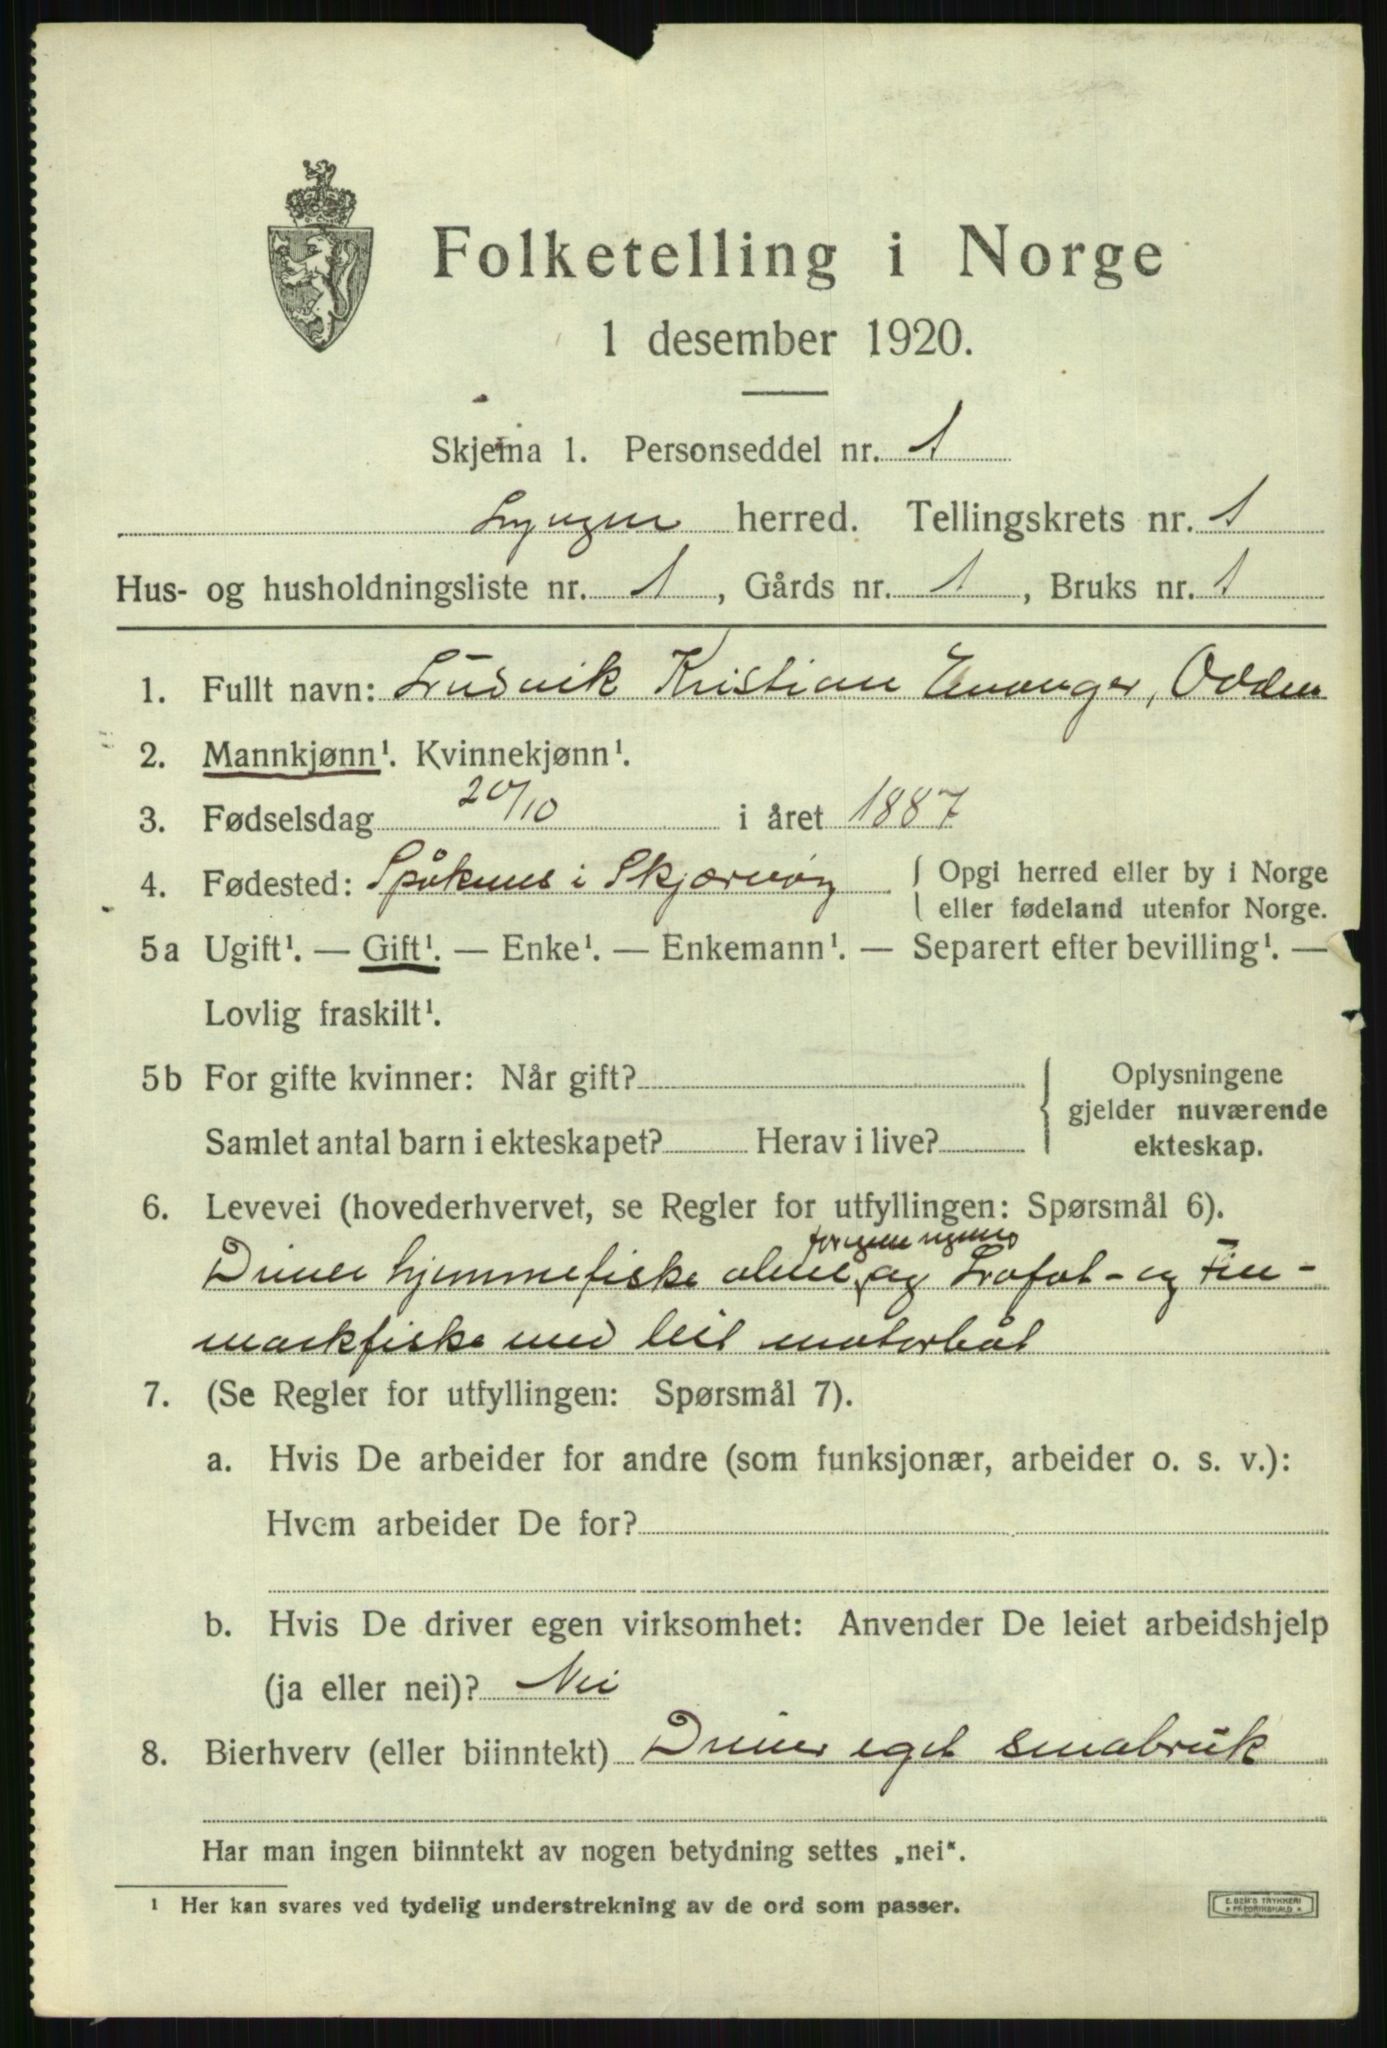 Folketelling i Norge
1 desember 1920.
Skjema 1. Personseddel nr. 1
Lyngen herred. Tellingskrets nr. 1
Hus- og husholdningsliste nr. 1, Gårds nr. 1, Bruks nr. 1
1. Fullt navn: Ludvik Kristian Evanger, Odden
2. Mannkjønn¹. Kvinnekjønn¹.
3. Fødselsdag 20/10 i året 1887
4. Fødested: Spåknes i Skjærvøy { Opgi herred eller by i Norge
eller fødeland utenfor Norge.
5a Ugift¹. — Gift¹. — Enke¹. — Enkemann¹. — Separert efter bevilling¹. —
Lovlig fraskilt¹.
5b For gifte kvinner: Når gift?
Samlet antal barn i ekteskapet? Herav i live?
Oplysningene
gjelder nuværende
ekteskap.
6. Levevei (hovederhvervet, se Regler for utfyllingen: Spørsmål 6).
for egen regning
Driver hjemmefiske alene, og Lofot- og Fin-
markfiske med leit motorbåt
7. (Se Regler for utfyllingen: Spørsmål 7).
a. Hvis De arbeider for andre (som funksjonær, arbeider o. s. v.):
Hvem arbeider De for?
b. Hvis De driver egen virksomhet: Anvender De leiet arbeidshjelp
(ja eller nei)? Nei
8. Bierhverv (eller biinntekt) Driver eget småbruk
Har man ingen biinntekt av nogen betydning settes „nei“.
¹ Her kan svares ved tydelig understrekning av de ord som passer.
E. SEM'S TRYKKERI
* FREDRIKSHALD *